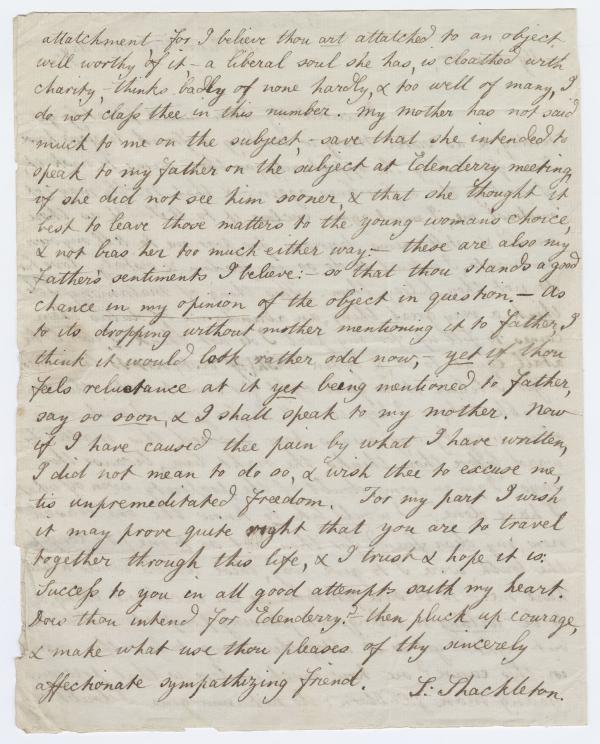 attatchment – for I believe thou art attatched to an object
well worthy of it – a liberal soul she has, is cloathed with
charity, – thinks badly of none hardly, & too well of many, I
do not class thee in this number. My mother has not said
much to me on the subject, – save that she intended to
speak to my father on the subject at Edenderry meeting,
if she did not see him sooner, & that she thought it
best to leave those matters to the young woman's choice,
& not bias her too much either way – these are also my
Father's sentiments I believe: – so that thou stands a good
chance in my opinion of the object in question. – As
to its dropping without mother mentioning it to Father, I
think it would look rather odd now, – yet if thou
feels reluctance at it yet being mentioned to father,
say so soon, & I shall speak to my mother. Now
if I have caused thee pain by what I have written,
I did not mean to do so, & wish thee to excuse me,
tis unpremeditated freedom. For my part I wish
it may prove quite right that you are to travel
together through this life, & I trust & hope it is:
Success to you in all good attempts saith my heart.
Does thou intend for Edenderry? – then pluck up courage,
& make what use thou pleases of thy sincerely
affectionate sympathizing friend. S: Shackleton.